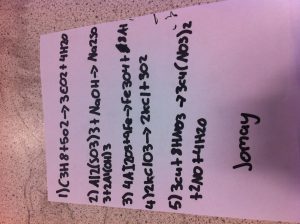 1) C3H8+5O2→3CO2+4H2O
2) Al2(SO3)3+NaOH→Na2SO
3+2Al(OH)3
3) 4Al2O3+9Fe→3Fe3O4+8Al
4) 2KClO3→2KCl+3O2
5) 3Cu+8HNO3→3Cu(NO3)2
+2NO+4H2O
Jomay